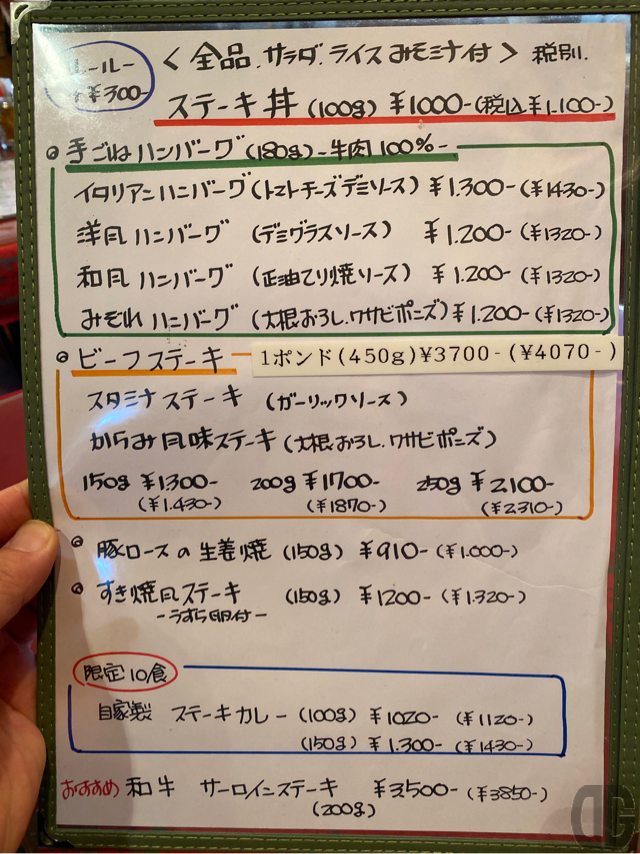 ルール
¥300-
<全品.サラダ.ライスみそミナ付> 税別.
ステーキ丼 (100g) ¥1000-(税込¥1.100-)
手ごねハンバーグ(180g)-牛肉100%-
イタリアンハンバーグ(トマトチーズデミソース) ¥1.300-(¥1430-)
洋風ハンバーグ (デミグラスソース) ¥1.200-(¥1320-)
和風ハンバーグ (正油てり焼ソース) ¥1.200-(¥1320-)
みぞれハンバーグ (大根おろし.ワサビポニズ) ¥1.200-(¥1320-)
ビーフステーキ 1ポンド(450g)¥3700-(¥4070-)
スタミナステーキ (ガーリックソース)
からみ風味ステーキ(大根おろし.ワサビポニズ)
150g ¥1300- 200g ¥1700- 250g ¥2100-
(¥1.430-) (¥1870-) (¥2310-)
豚ロースの生姜焼 (150g) ¥910-(¥1.000-)
すき焼風ステーキ (150g) ¥1200-(¥1.320-)
-うずら卵付-
限定10食
自家製 ステーキカレー(100g) ¥1020- (¥1120-)
(150g) ¥1.300-(¥1430-)
おすすめ 和牛 サーロインステーキ ¥3,500-(¥3850-)
(200g)